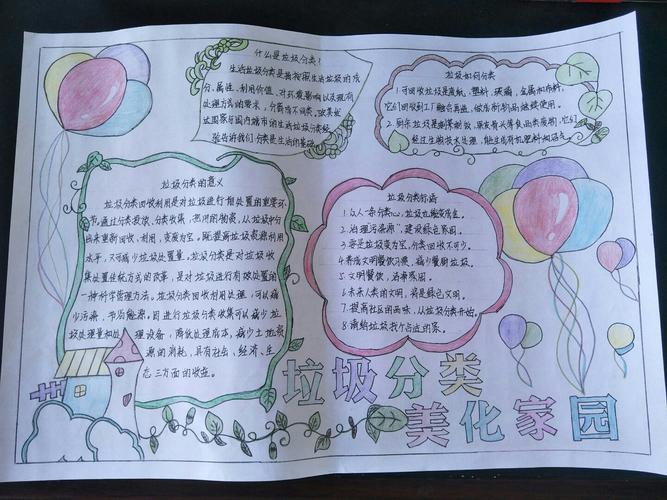 什么是垃圾分类?
生活垃圾分类是指按照生活垃圾的成
分、属性、利用价值、对环境影响以及现有
处理方式的要求,分离成不同类。欧美发
达国家与国内城市的生活垃圾分类经
验告诉我们分类是生活的基础。
垃圾如何分类
1.可回收垃圾是废纸,塑料,玻璃,金属和布料,
它们回收到工厂融合再造,做成新物品继续使用。
2.厨余垃圾是剩菜剩饭,果皮骨头等食品类废物,它们
经过生物技术处理,能生成有机肥料和沼气。
垃圾分类的意义
垃圾分类回收利用是对垃圾进行前处置的重要环
节。通过分类投放、分类收集,把有用物资,从垃圾中分
出来重新回收,利用,变废为宝。既提高垃圾资源利用
水平,又可减少垃圾处置量。垃圾分类是对垃圾收
集处置传统方式的改革,是对垃圾进行有效处置的
一种科学管理方法。垃圾分类回收利用处理,可以减
少污染,节省能源。因进行垃圾分类收集可以减少垃
圾处理量和处理设备,降低处理成本,减少土地资
源的消耗,具有社会、经济、生
态三方面的收益。
垃圾分类标语
1.众人一条分类心,垃圾也能变成金。
2.治理污染源,建设绿色家园。
3.要是垃圾变为宝,分类回收不可少。
4.养成文明餐饮习惯,减少餐厨垃圾。
5.文明餐饮,洁净家园。
6.未来人类的文明,将是绿色文明。
7.提高社区的品味,从垃圾分类开始。
8.请给垃圾找个合适的家。
垃圾分类
美化家园